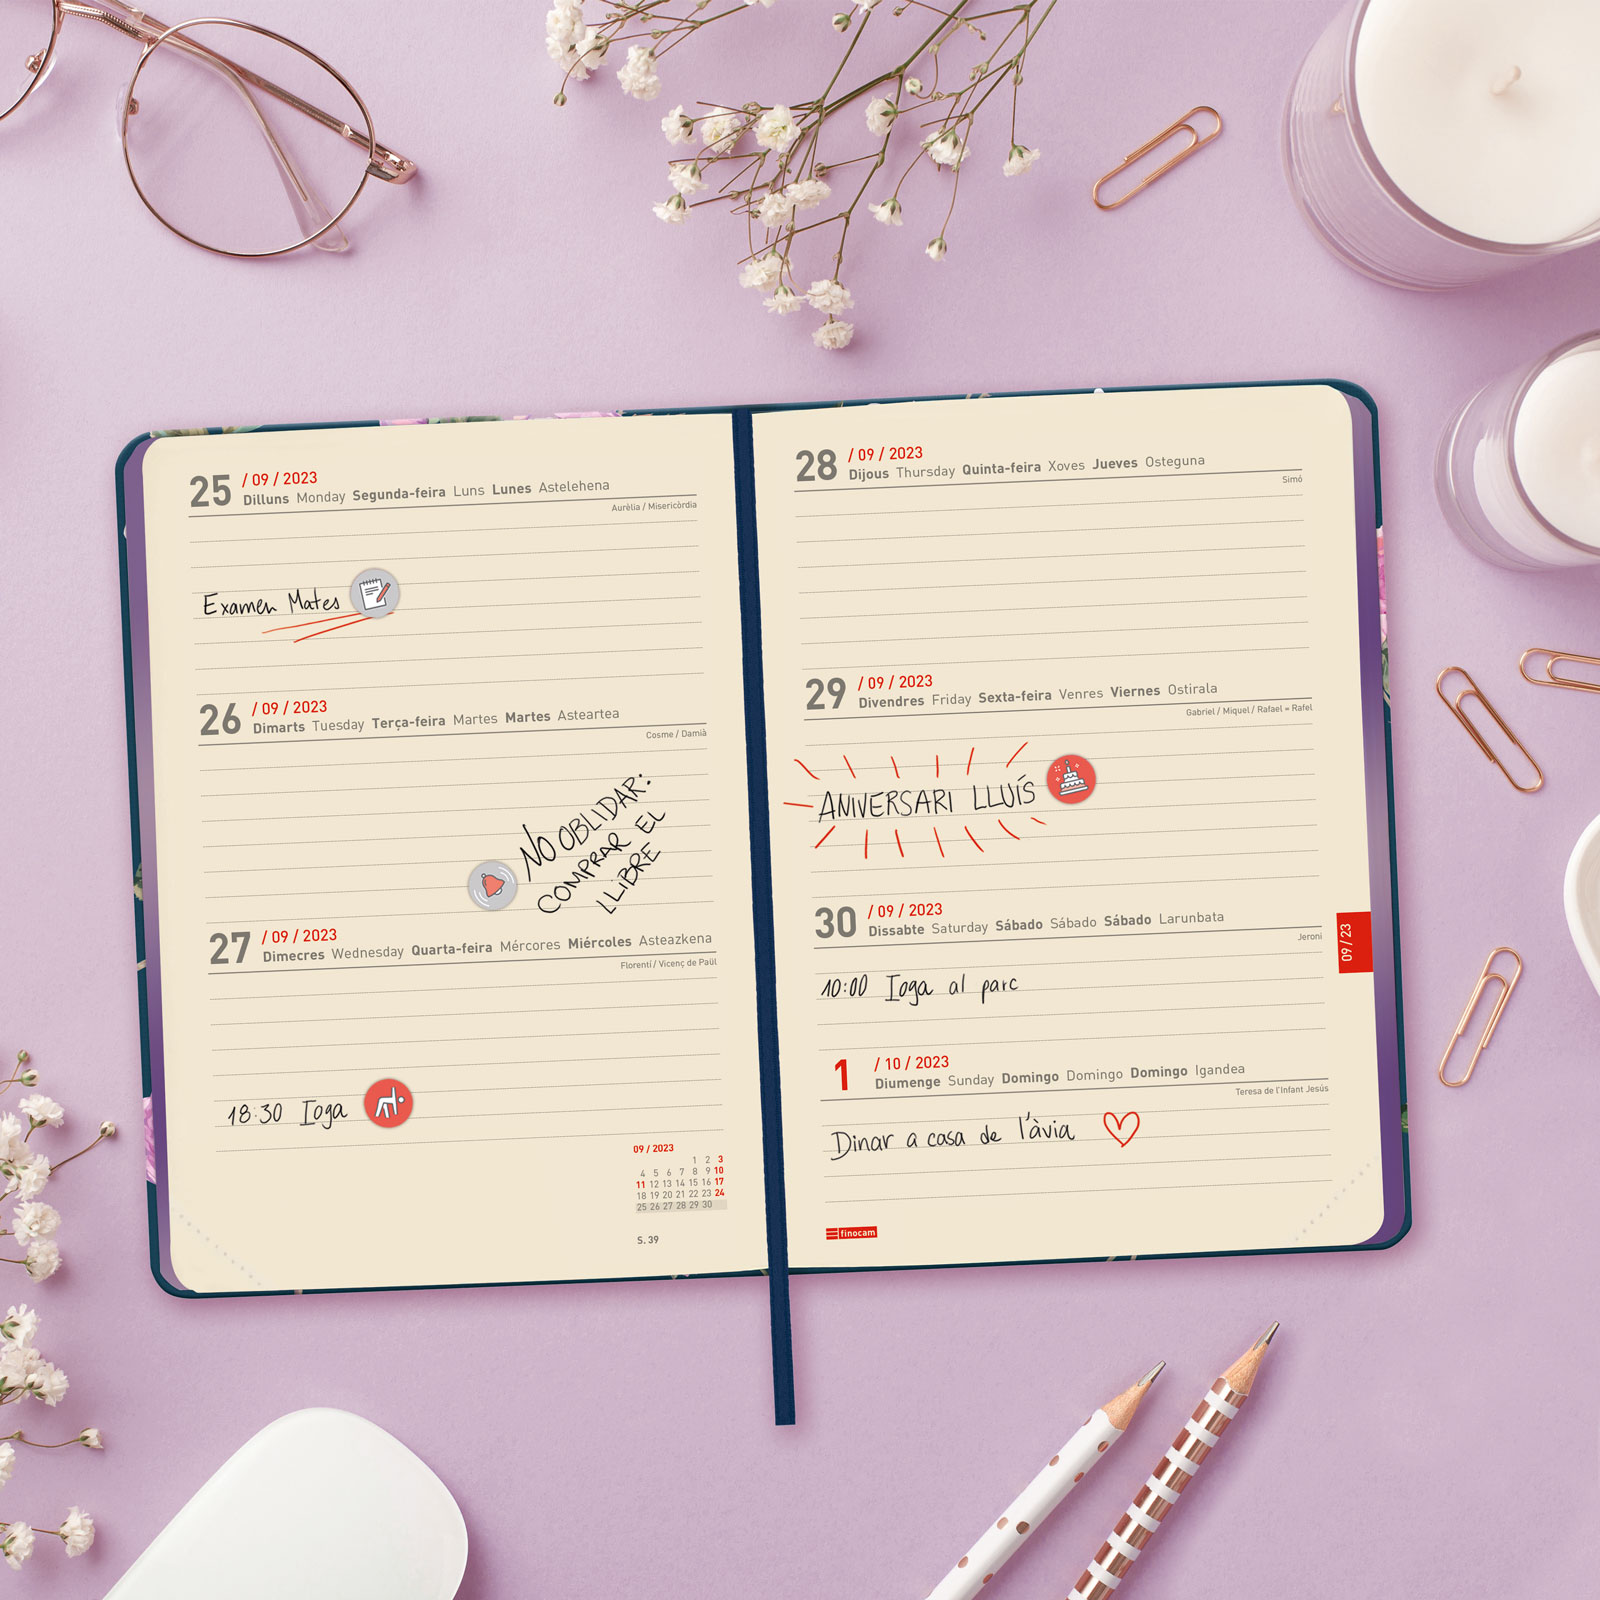 25 / 09 / 2023
Dilluns Monday Segunda-feira Luns Lunes Astelehena
Aurèlia / Misericòrdia
Examen Mates
26 / 09 / 2023
Dimarts Tuesday Terça-feira Martes Martes Asteartea
Cosme / Damià
NO OBLIDAR:
COMPRAR EL
LLIBRE
27 / 09 / 2023
Dimecres Wednesday Quarta-feira Mércores Miércoles Asteazkena
Florentí / Vicenç de Paül
18:30 Ioga
09 / 2023
1 2 3
4 5 6 7 8 9 10
11 12 13 14 15 16 17
18 19 20 21 22 23 24
25 26 27 28 29 30
S. 39
28 / 09 / 2023
Dijous Thursday Quinta-feira Xoves Jueves Osteguna
Simó
29 / 09 / 2023
Divendres Friday Sexta-feira Venres Viernes Ostirala
Gabriel / Miquel / Rafael = Rafel
ANIVERSARI LLUÍS
30 / 09 / 2023
Dissabte Saturday Sábado Sábado Sábado Larunbata
Jeroni
09 / 23
10:00 Ioga al parc
1 / 10 / 2023
Diumenge Sunday Domingo Domingo Domingo Igandea
Teresa de l'Infant Jesús
Dinar a casa de l'àvia
finocam